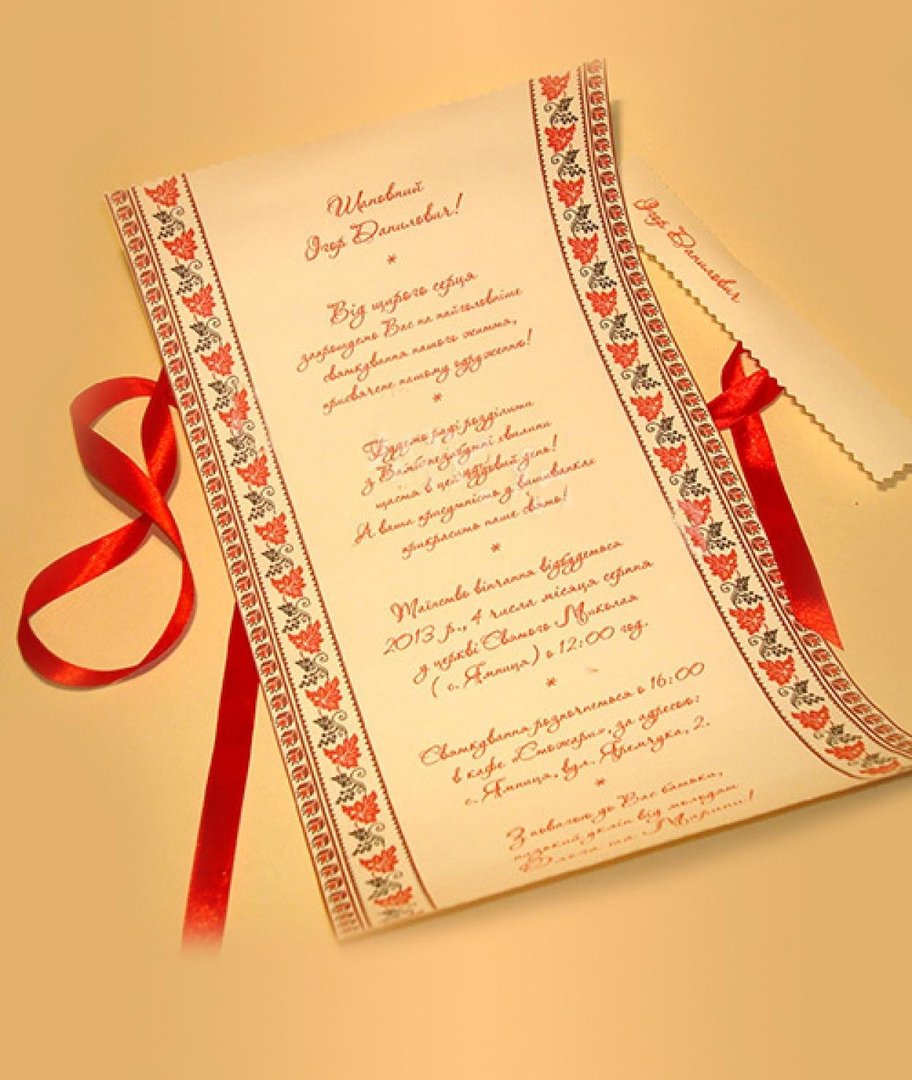 Шановний
Ігор Данилович!
*
Від щирого серця
запрошуємо Вас на найголовніше
святкування нашого життя,
присвячене нашому одруженню!
*
Будемо раді розділити
з Вами незабутні хвилини
щастя в цей чудовий день!
А ваша присутність у вишиванках
прикрасить наше свято!
*
Таїнство вінчання відбудеться
2013 р., 4 числа місяця серпня
у церкві Святого Миколая
( с. Ямниця) о 12:00 год.
*
Святкування розпочнеться о 16:00
в кафе «Сможари», за адресою:
с. Ямниця, вул. Яремчука, 2.
*
З повагою до Вас батьки,
низький уклін від молодят
Олега та Марини!
Ігор Данилович